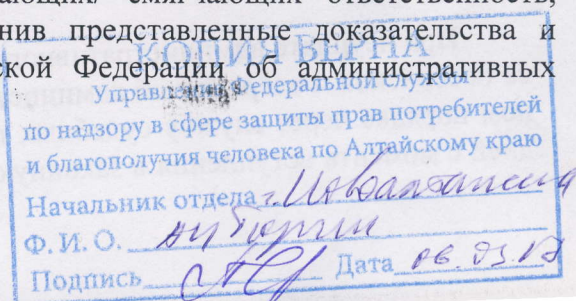 смягчающих ответственность,
нив представленные доказательства и
ской Федерации об административных
КОПИЯ ВЕРНА
Управление Федеральной службы
по надзору в сфере защиты прав потребителей
и благополучия человека по Алтайскому краю
Начальник отдела
Ф. И. О.
Подпись Дата 06.03.17